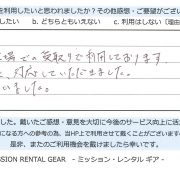 利用したいと思われましたか？その他感想・ご要望がござい
したい　b. どちらともいえない　c. 利用はしない〔理由
場での受取りで利用しております。
、対応していただきました。
いました。
した。戴いたご感想・意見を大切に今後のサービス向上に活
になる方への参考の為、当HP上で利用させて戴くことがございます
是非、またのご利用機会を戴けましたら幸いです。
SSION RENTAL GEAR - ミッション・レンタル ギア -